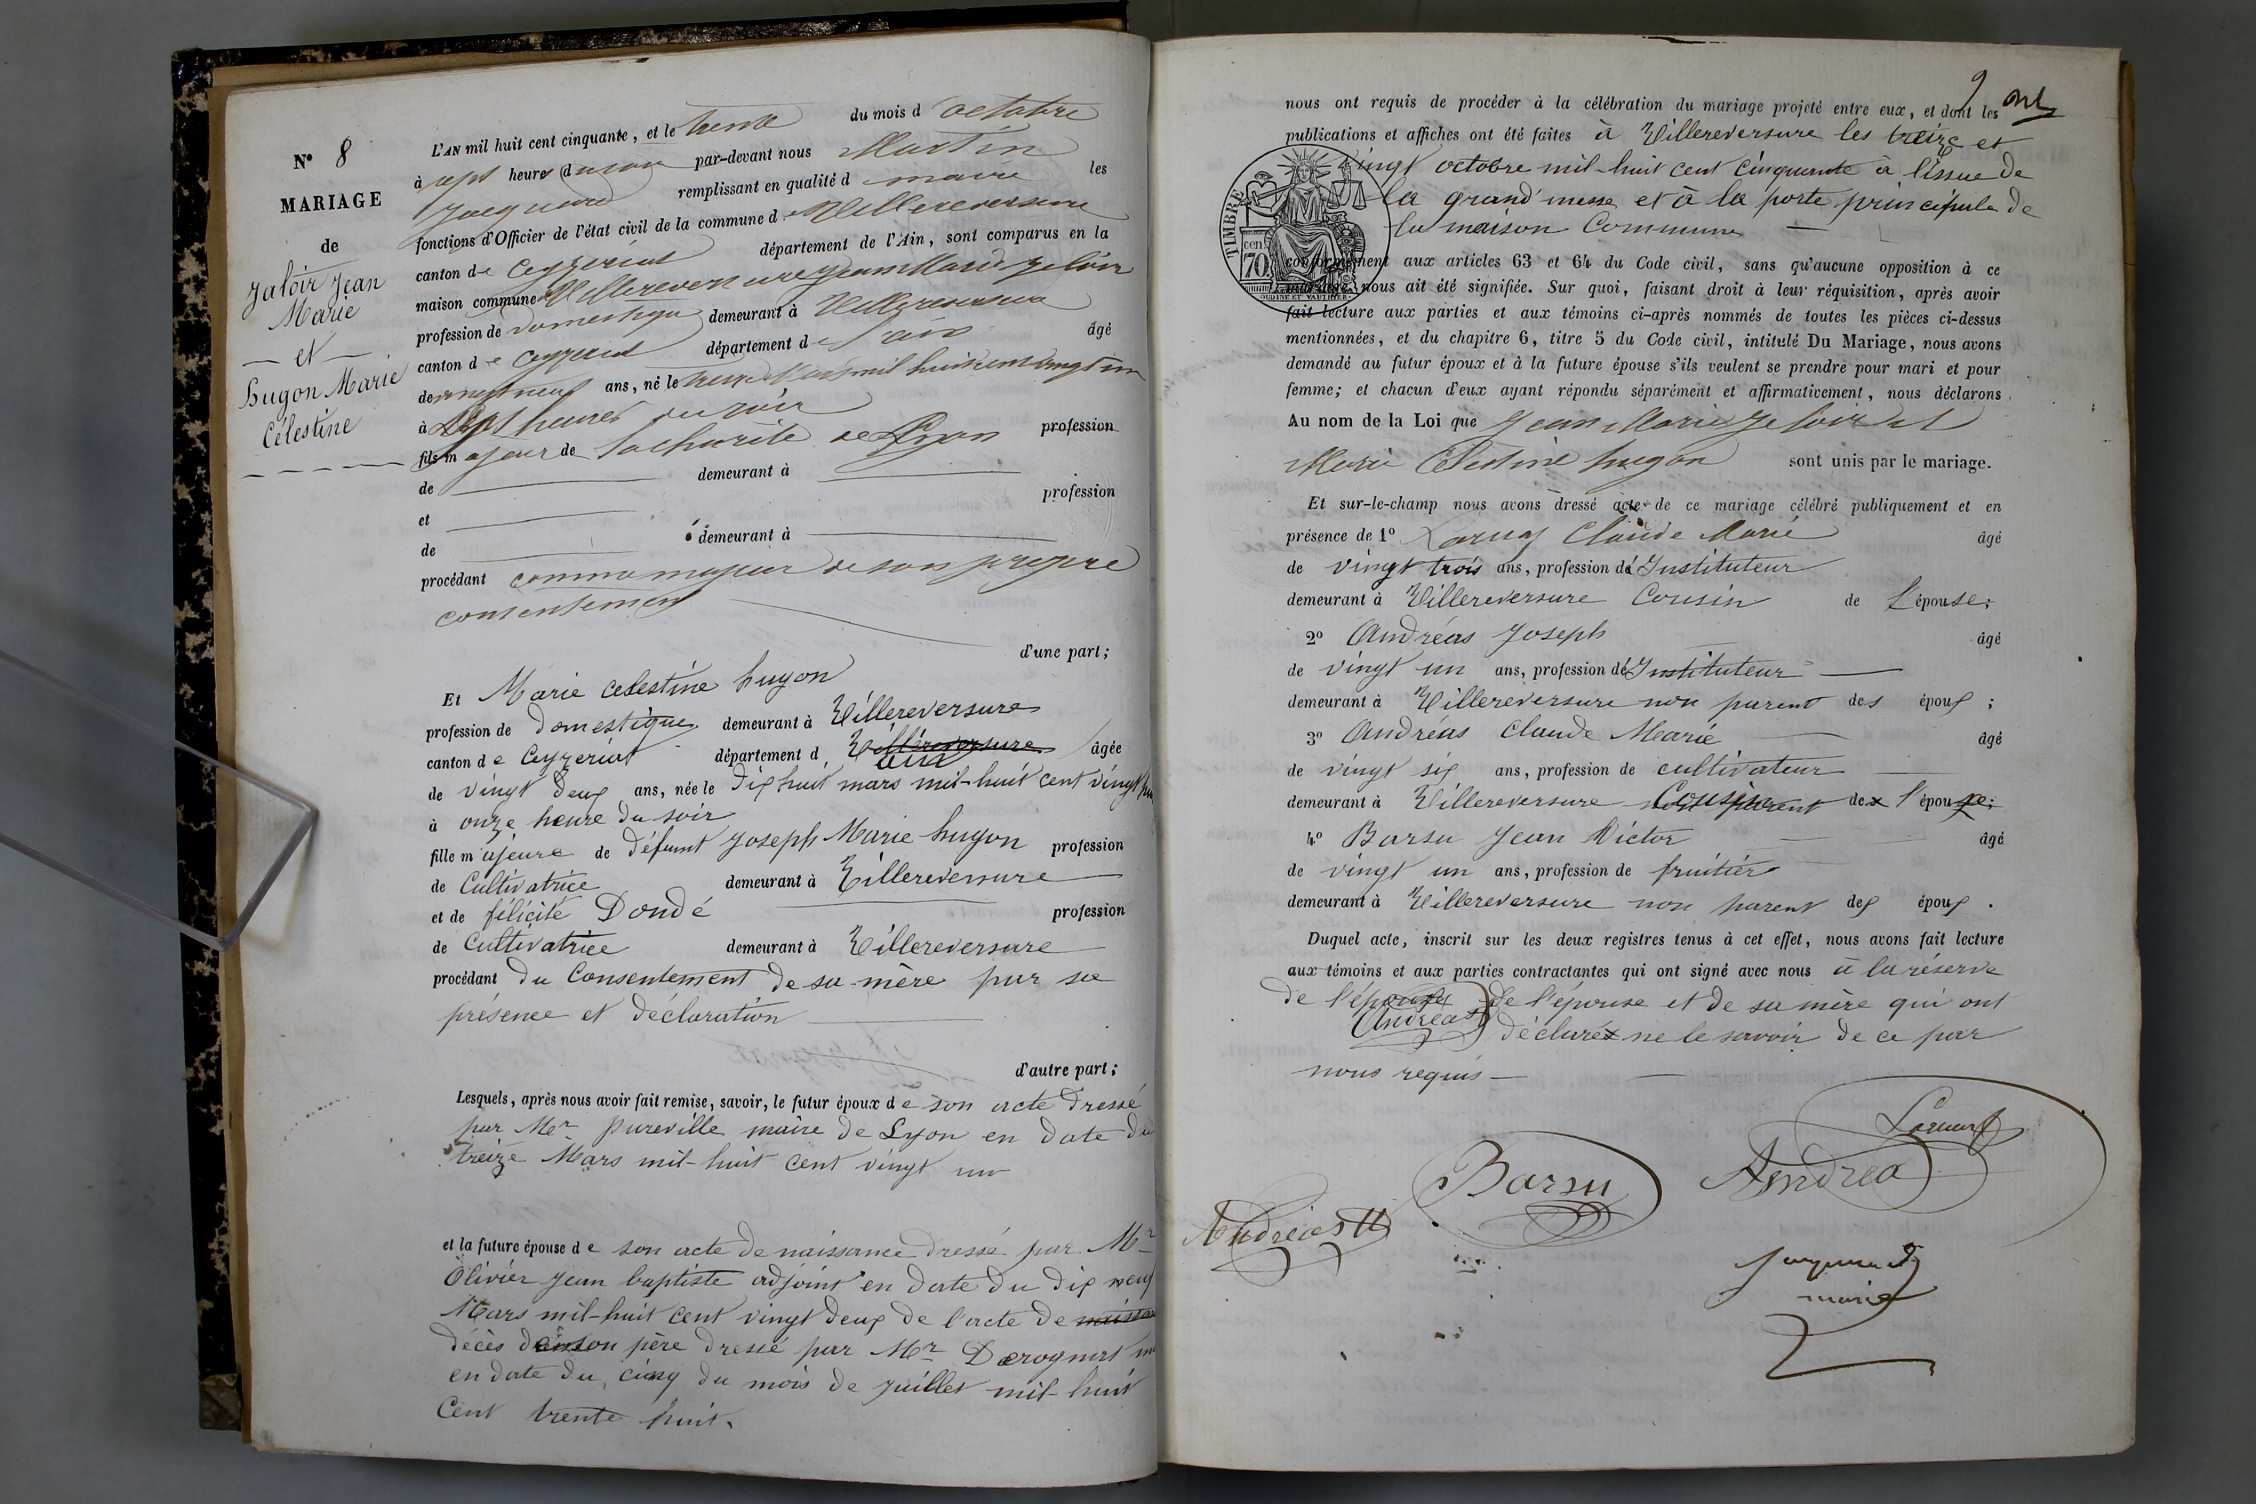 N° 8
MARIAGE
de
Jaloir Jean
Marie
et
hugon Marie
Célestine
L'AN mil huit cent cinquante, et le trente du mois d octobre
à sept heures du soir par-devant nous Martin
Jacquand remplissant en qualité d maire les
fonctions d'Officier de l'état civil de la commune de Villereversure
canton de Ceyzeriat département de l'Ain, sont comparus en la
maison commune Villereversure Jean Marie Jaloir
profession de domestique demeurant à Villereversure
canton de ceyzeriat département de l'ain âgé
de vingt neuf ans, né le treize Mars mil huit cent vingt un
à sept heures du soir
fils majeur de la charité de Lyon profession
de demeurant à
et profession
de demeurant à
procédant comme majeur de son propre
consentement
d'une part;
Et Marie celestine hugon
profession de domestique demeurant à Villereversure
canton de Ceyzeriat département d Villereversure âgée
de vingt deux ans, née le dix huit mars mil-huit cent vingt
à onze heure du soir
fille majeure de défunt Joseph Marie hugon profession
de Cultivatrice demeurant à Villereversure
et de félicité Dondé profession
de Cultivatrice demeurant à Villereversure
procédant du Consentement de sa mère par sa
présence et déclaration
d'autre part;
Lesquels, après nous avoir fait remise, savoir, le futur époux de son acte dressé
par Mr pureville maire de Lyon en date du
treize Mars mil-huit cent vingt un
et la future épouse de son acte de naissance dressé par Mr
Olivier Jean baptiste adjoint en date du dix neuf
Mars mil-huit cent vingt deux de l'acte de
décès de son père dressé par Mr Derognat
en date du cinq du mois de juillet mil-huit
Cent trente huit.
9
nous ont requis de procéder à la célébration du mariage projeté entre eux, et dont les
publications et affiches ont été faites à Villereversure les treize et
vingt octobre mil-huit cent cinquante à l'issue de
la grand'messe et à la porte principale de
la maison Commune
TIMBRE
70 cen
OUDINE ET VAUTHIER
conformément aux articles 63 et 64 du Code civil, sans qu'aucune opposition à ce
mariage nous ait été signifiée. Sur quoi, faisant droit à leur réquisition, après avoir
fait lecture aux parties et aux témoins ci-après nommés de toutes les pièces ci-dessus
mentionnées, et du chapitre 6, titre 5 du Code civil, intitulé Du Mariage, nous avons
demandé au futur époux et à la future épouse s'ils veulent se prendre pour mari et pour
femme; et chacun d'eux ayant répondu séparément et affirmativement, nous déclarons
Au nom de la Loi que Jean Marie Jaloir et
Marie Célestine hugon sont unis par le mariage.
Et sur-le-champ nous avons dressé acte de ce mariage célébré publiquement et en
présence de 1° Larnay Claude Marie âgé
de vingt trois ans, profession d'Instituteur
demeurant à Villereversure Cousin de l'épouse;
2° Andréas Joseph âgé
de vingt un ans, profession d'Instituteur
demeurant à Villereversure non parent des époux;
3° Andréas Claude Marie âgé
de vingt six ans, profession de cultivateur
demeurant à Villereversure Cousin de l'épouse;
4° Barsu Jean Victor âgé
de vingt un ans, profession de fruitier
demeurant à Villereversure non parent des époux.
Duquel acte, inscrit sur les deux registres tenus à cet effet, nous avons fait lecture
aux témoins et aux parties contractantes qui ont signé avec nous à la réserve
de l'épouse de l'épouse et de sa mère qui ont
Andreas déclaré ne le savoir de ce par
nous requis
Larnay
Barsu Andrea
Andreas
Jacquand
maire